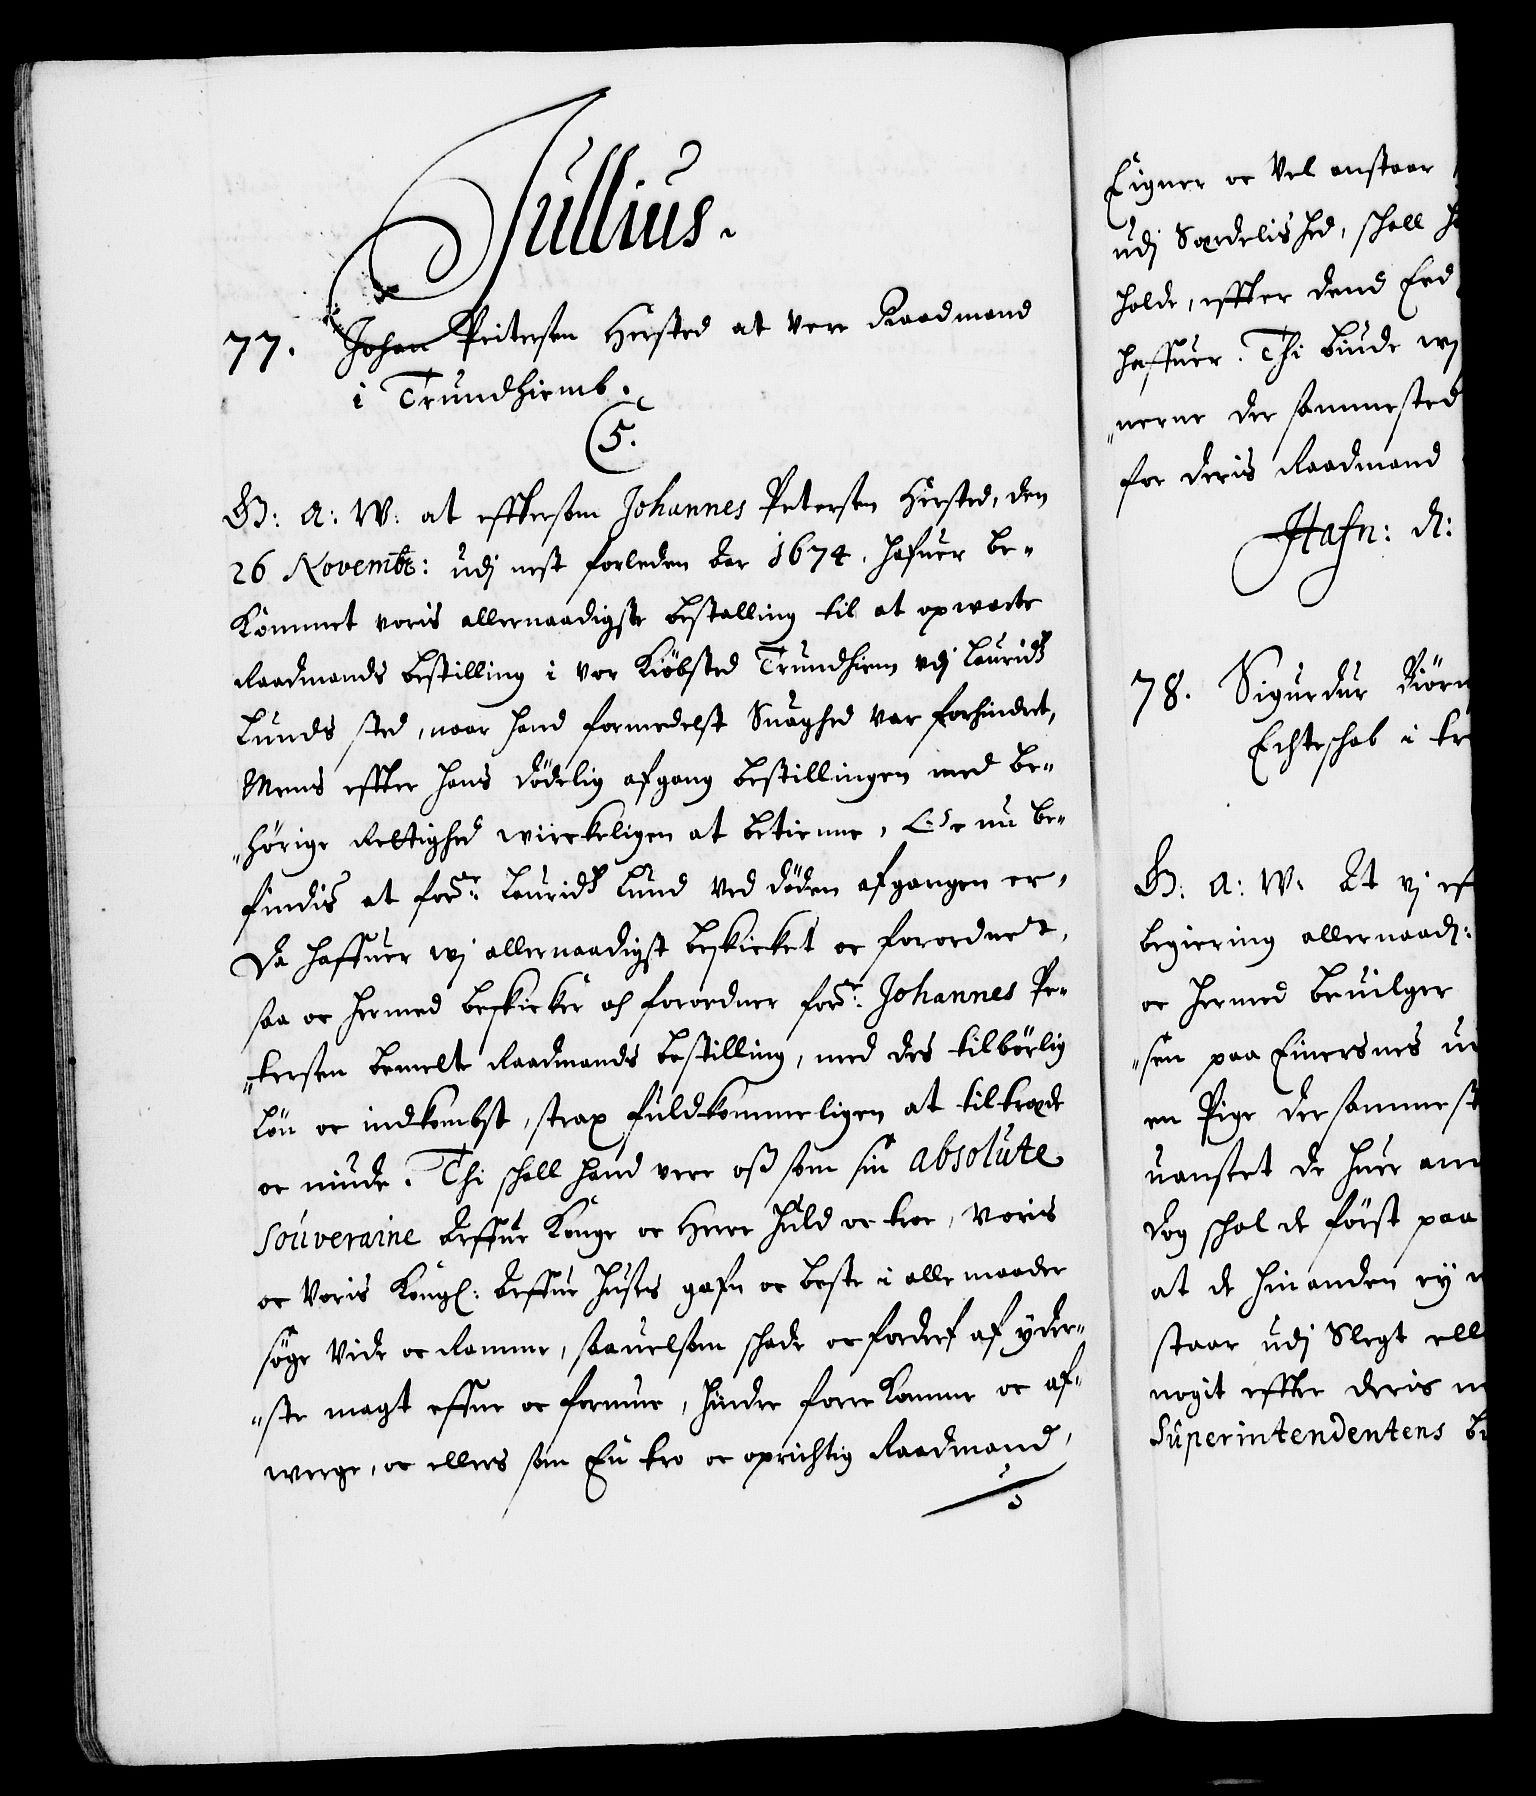 Jullius.
77. Johan Peitersen Hersted at vere Raadmand
i Trundhiemb.
5.
G: A: W: at effttersom Johannes Petersen Hersted, den
26 Novembr: udj nest forleden aar 1674. hafuer be-
kommet voris allernaadigste bestalling til at opwarte
Raadmands bestilling i vor Kiöbsted Trundhiem udj Lauridtz
Lunds sted, naar hand formedelst Suaghed var forhindret,
Mens effter hans dödelig afgang bestillingen med be-
"hörige Rettighed wirckeligen at betienne, Ende nu be-
findis at forne: Lauridtz Lund ved döden afgangen er,
Da haffuer wj allernaadigst beskicket oc forordnet,
saa oc hermed beskicker och forordner forne: Johannes Pe-
"tersen bemelte Raadmands bestilling, med des tilbörlig
Lön oc indkombst, strax fuldkommeligen at tiltræde
oc niude. Thi schall hand vere oß som sin absolute
souveraine Arffue Konge oc Herre huld oc troe, Voris
oc Voris Kongl: Arffue Huses gafn oc beste i alle maader
söge vide oc Ramme, saauelsom schade oc forderf af yder-
"ste magt effne oc formue, hindre forrekomme oc af-
werge, oc ellers som En tro oc oprichtig Raadmand,
Eigner oc Vel anstaar
udj Særdelished, schall h
holde, effter dend Eed
haffuer. Thi biude wj
"nerne der sammested
for deris Raadmand
Hafn: d:
78. Sigurdur Biörn
Echteschab i tr
G: A: W: At vj ef
begiering allernaadj:
oc hermed beuilger
"sen paa Einersnes ud
en Pige dersammest
uanseet de huer an
dog schal de först paa
at de hinanden ey n
staar udj Slegt ell
nogit effter deris m
Superintendentens be